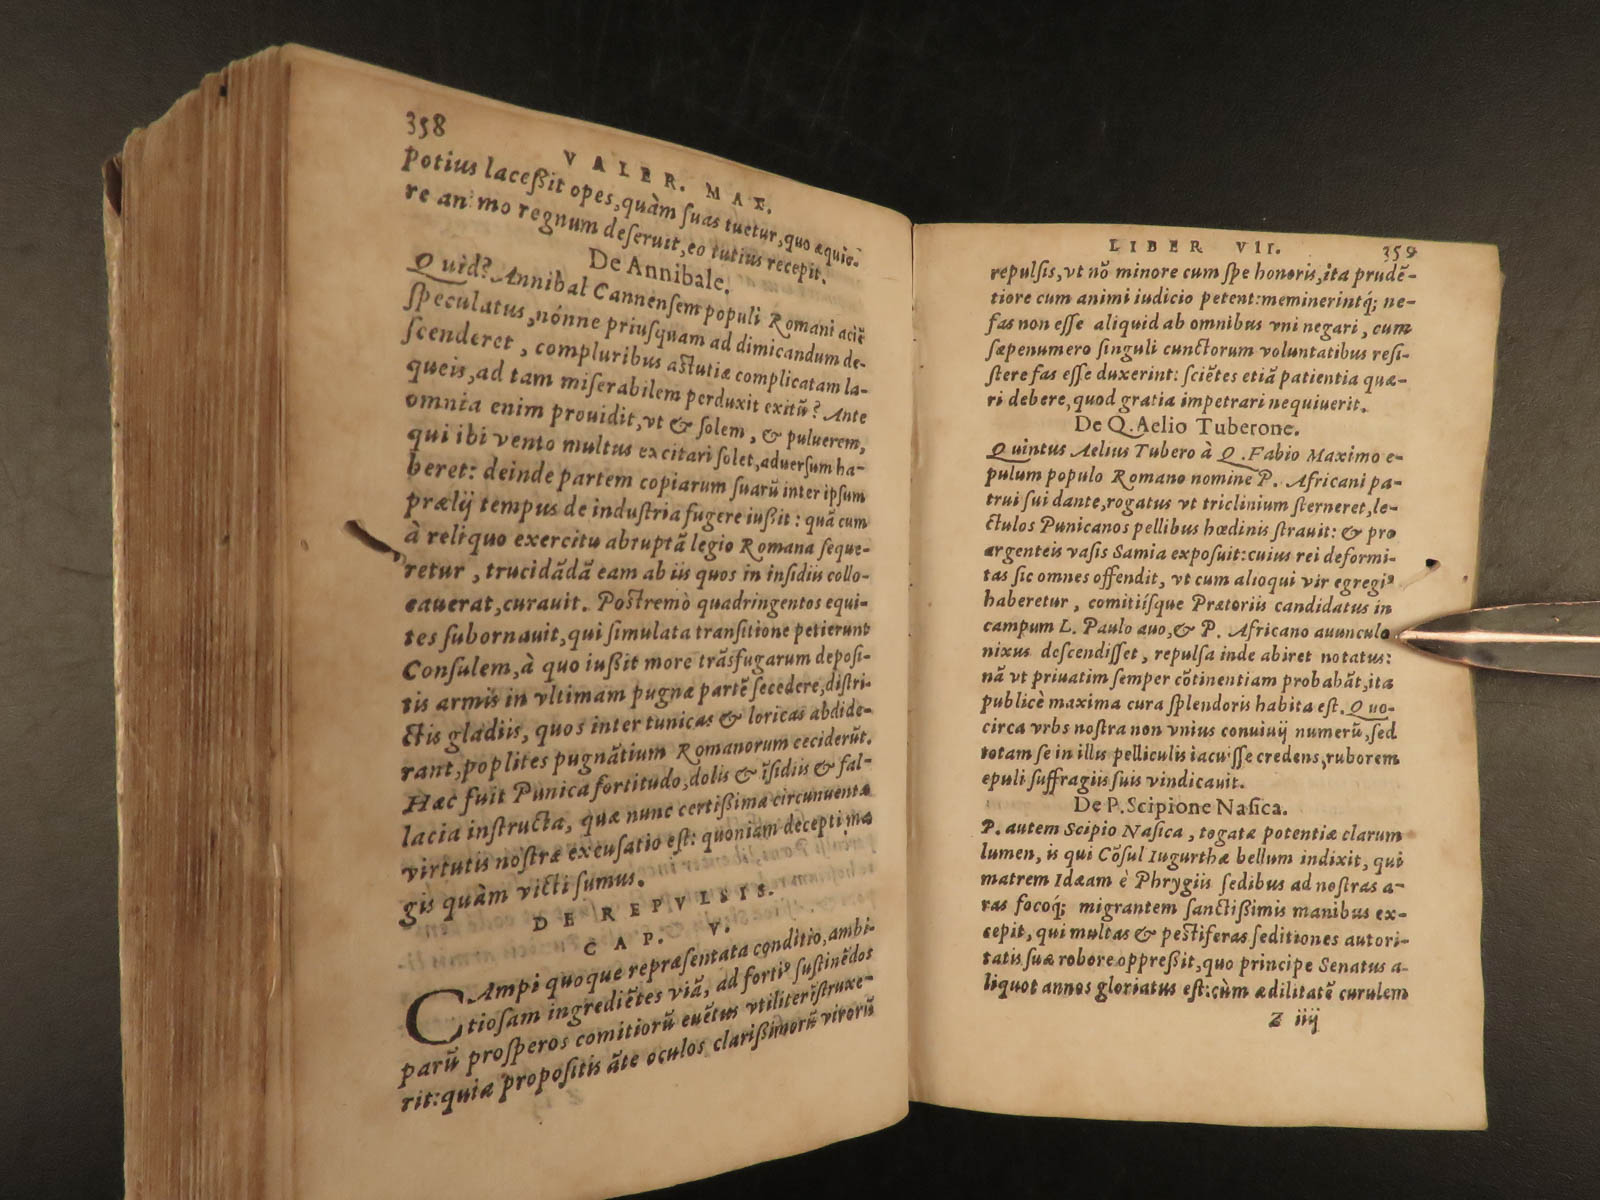 358
VALER. MAX.
Potius laceßit opes, quàm ſuas tuetur, quo æquio-
re animo regnum deſeruit, eo tutius recepit.
De Annibale.
Quid? Annibal Cannenſem populi Romani aciē
ſpeculatus, nónne priuſquam ad dimicandum de-
ſcenderet, compluribus aſtutiæ complicatam la-
queis, ad tam miſerabilem perduxit exitū? Ante
omnia enim prouidit, vt & ſolem, & puluerem,
qui ibi vento multus excitari ſolet, aduerſum ha-
beret: deinde partem copiarum ſuarū inter ipſum
prælij tempus de induſtria fugere iußit: quā cum
à reliquo exercitu abruptā legio Romana ſeque-
retur, trucidādā eam ab iis quos in inſidiis collo-
cauerat, curauit. Poſtremò quadringentos equi-
tes ſubornauit, qui ſimulata tranſitione petierunt
Conſulem, à quo iußit more trāsfugarum depoſi-
tis armis in vltimam pugnæ partē ſecedere, diſtri-
ctis gladiis, quos inter tunicas & loricas abdide-
rant, poplites pugnātium Romanorum ceciderūt.
Hæc fuit Punica fortitudo, dolis & īſidiis & fal-
lacia inſtructa, quæ nunc certißima circunuentæ
virtutis noſtræ excuſatio eſt: quoniam decepti ma
gis quàm victi ſumus.
DE REPVLSIS.
CAP. V.
CAmpi quoque repræſentata conditio, ambi-
tioſam ingrediētes viā, ad fortiꝰ ſuſtinēdos
parū proſperos comitiorū euētus vtiliter īſtruxe-
rit: quia propoſitis āte oculos clarißimorū virorū
LIBER VII. 359
repulſis, vt nō minore cum ſpe honoris, ita prudē-
tiore cum animi iudicio petent: meminerintq́; ne-
fas non eſſe aliquid ab omnibus vni negari, cum
ſæpenumero ſinguli cunctorum voluntatibus reſi-
ſtere fas eſſe duxerint: ſciētes etiā patientia quæ-
ri debere, quod gratia impetrari nequiuerit.
De Q. Aelio Tuberone.
Quintus Aelius Tubero à Q. Fabio Maximo e-
pulum populo Romano nomine P. Africani pa-
trui ſui dante, rogatus vt triclinium ſterneret, le-
ctulos Punicanos pellibus hœdinis ſtrauit: & pro
argenteis vaſis Samia expoſuit: cuius rei deformi-
tas ſic omnes offendit, vt cum alioqui vir egregiꝰ
haberetur, comitiíſque Prætoriis candidatus in
campum L. Paulo auo, & P. Africano auunculo
nixus deſcendiſſet, repulſa inde abiret notatus:
nā vt priuatim ſemper cōtinentiam probabāt, ita
publicè maxima cura ſplendoris habita eſt. Quo-
circa vrbs noſtra non vnius conuiuij numerū, ſed
totam ſe in illis pelliculis iacuiſſe credens, ruborem
epuli ſuffragiis ſuis vindicauit.
De P. Scipione Naſica.
P. autem Scipio Naſica, togatæ potentiæ clarum
lumen, is qui Cōſul Iugurthæ bellum indixit, qui
matrem Idæam è Phrygiis ſedibus ad noſtras a-
ras focoq́; migrantem ſanctißimis manibus ex-
cepit, qui multas & peſtiferas ſeditiones autori-
tatis ſuæ robore oppreßit, quo principe Senatus a-
liquot annos gloriatus eſt: cùm ædilitatē curulem
Z iiij